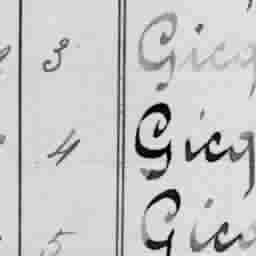 3 Gicq
4 Gicq
5 Gicq